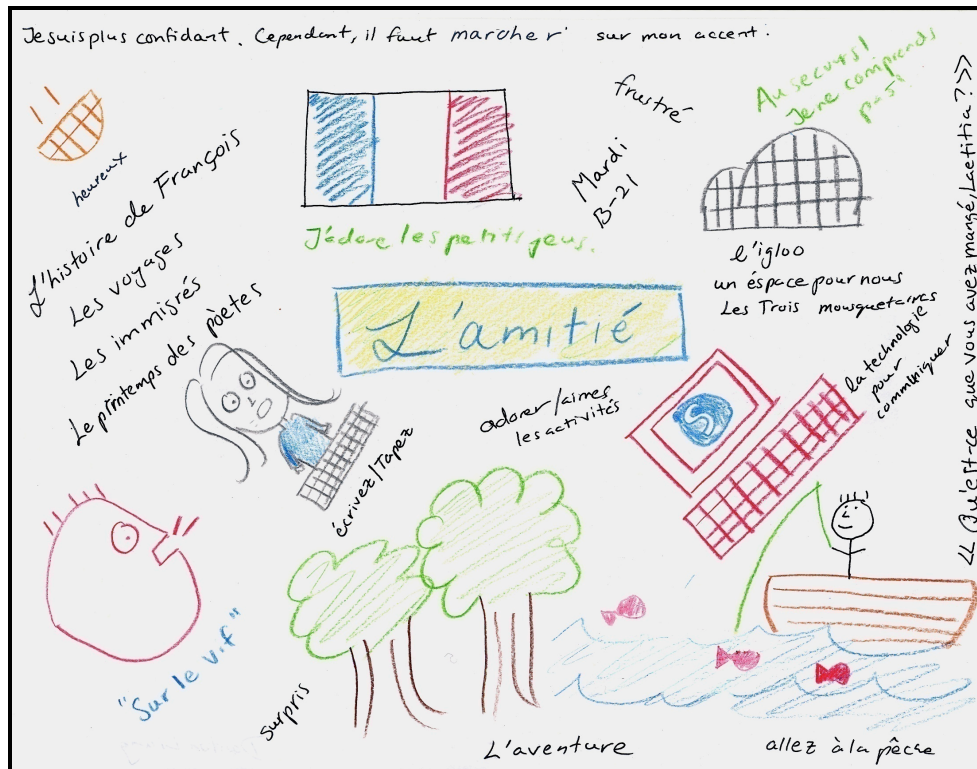 Je suis plus confidant. Cependant, il faut marcher sur mon accent.
heureux
L'histoire de François
Les voyages
Les immigrés
Le printemps des pòetes
J'adore les petits jeux.
frustré
Mardi
B-21
Au secours!
Je ne comprends
pas!
l'igloo
un éspace pour nous
Les Trois mousquetaires
<< Qu'est-ce que vous avez mangé, Laetitia? >>
L'amitié
adorer/aimes
les activités
la technologie
pour
communiquer
S
écrivez/Tapez
"Sur le vif"
surpris
L'aventure
allez à la pêche